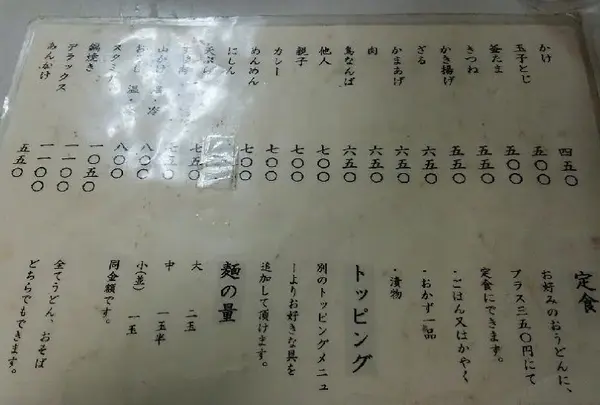 かけ 四五〇
玉子とじ 五〇〇
釜たま 五〇〇
きつね 五五〇
かき揚げ 五五〇
ざる 六五〇
かまあげ 六五〇
肉 六五〇
鳥なんば 六五〇
他人 七〇〇
親子 七〇〇
カレー 七〇〇
めんめん 七〇〇
にしん
七五〇
七五〇
山かけ 冷 八〇〇
温 八〇〇
スタミナ 一〇五〇
鍋焼き 一一〇〇
デラックス 一一〇〇
あんかけ 五五〇
定食
お好みのおうどんに、
プラス三五〇円にて
定食にできます。
・ごはん又はかやく
・おかず一品
・漬物
トッピング
別のトッピングメニュ
ーよりお好きな具を
追加して頂けます。
麺の量
大 二玉
中 一玉半
小(並) 一玉
同金額です。
全てうどん、おそば
どちらでもできます。